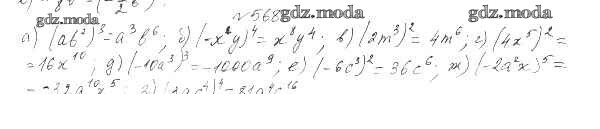 №568
gdz.moda gdz.moda gdz.moda
а) (ab²)³ = a³b⁶; б) (-x²y)⁴ = x⁸y⁴; в) (2m³)² = 4m⁶; г) (4x⁵)² =
= 16x¹⁰; д) (-10a³)³ = -1000a⁹; е) (-6c³)² = 36c⁶; ж) (-2a²x)⁵ =